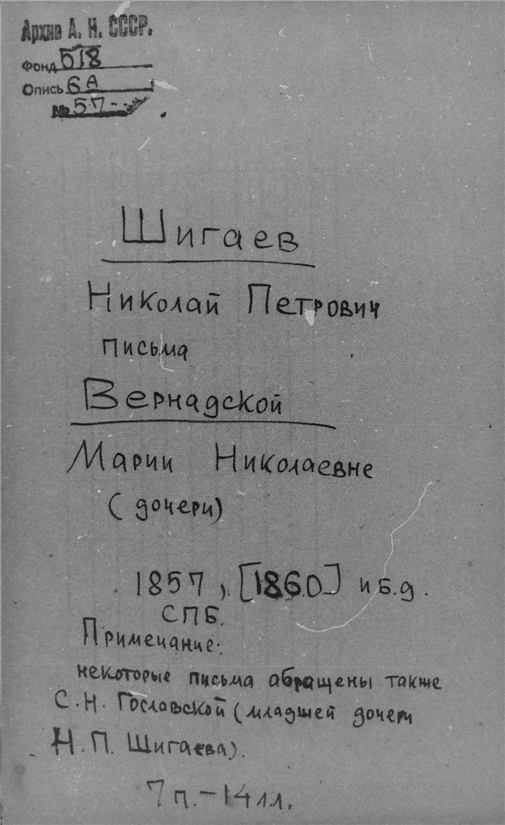 Архив А. Н. СССР.
Фонд 518
Опись 6А
№ 57
Шигаев
Николай Петрович
письма
Вернадской
Марии Николаевне
(дочери)
1857, [1860] и б.д.
СПБ.
Примечание:
некоторые письма абращены также
С.Н. Гославской (младшей дочери
Н.П. Шигаева).
7 п. – 14 лл.